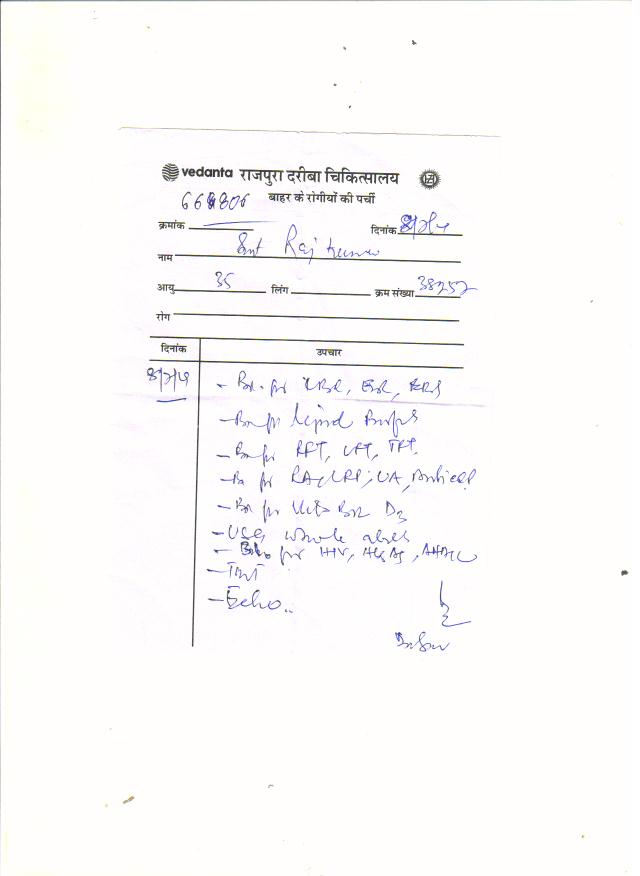 vedanta राजपुरा दरीबा चिकित्सालय
बाहर के रोगीयों की पर्ची
क्रमांक
दिनांक
नाम Smt Raj Kumar
आयु 35 लिंग क्रम संख्या 38252
रोग
दिनांक उपचार
- Bn for CBC, ESR,
- Bn for Lipid Profile
- Bn for RFT, LFT, TFT
- Bn for RA, CRP, UA, Anti CCP
- Bn for Vit B12 D3
- USG whole abd
- for HIV, HBsAg, AHCV
- TMT
- Echo..